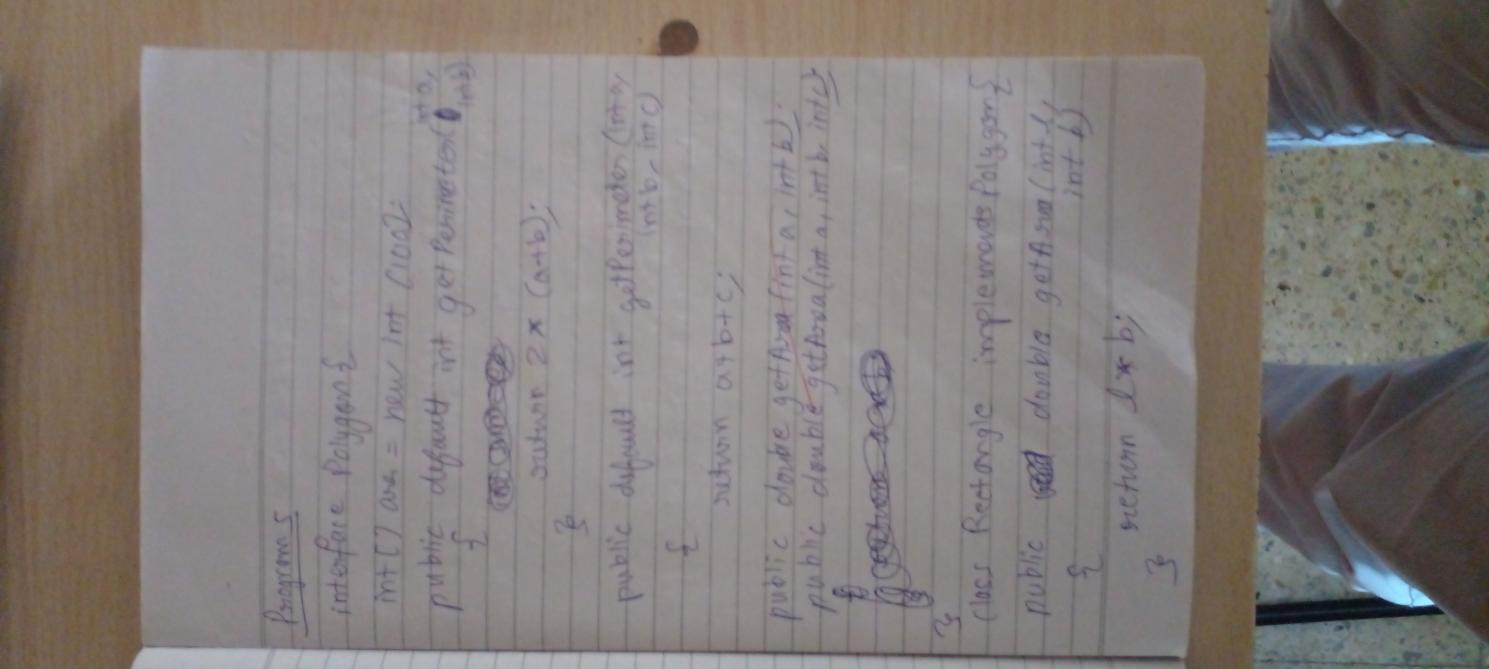 Program 5
interface Polygon{
int[] arr = new int [100];
public default int getPerimeter(int a,
int b)
{
return 2 * (a+b);
}
public default int getPerimeter(int a,
int b, int c)
{
return a+b+c;
public double getArea(int a, int b);
public double getArea(int a, int b, int c);
}
class Rectangle implements Polygon{
public double getArea(int l,
int b)
{
return l*b;
}